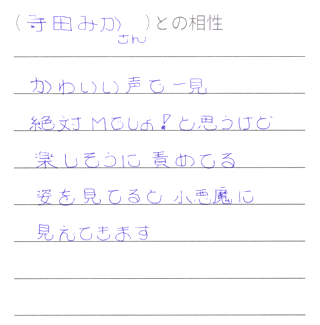 (寺田みかさん)との相性
かわいい声で一見
絶対Mでしょ!と思うけど
楽しそうに責めてる
姿を見てると小悪魔に
見えてきます